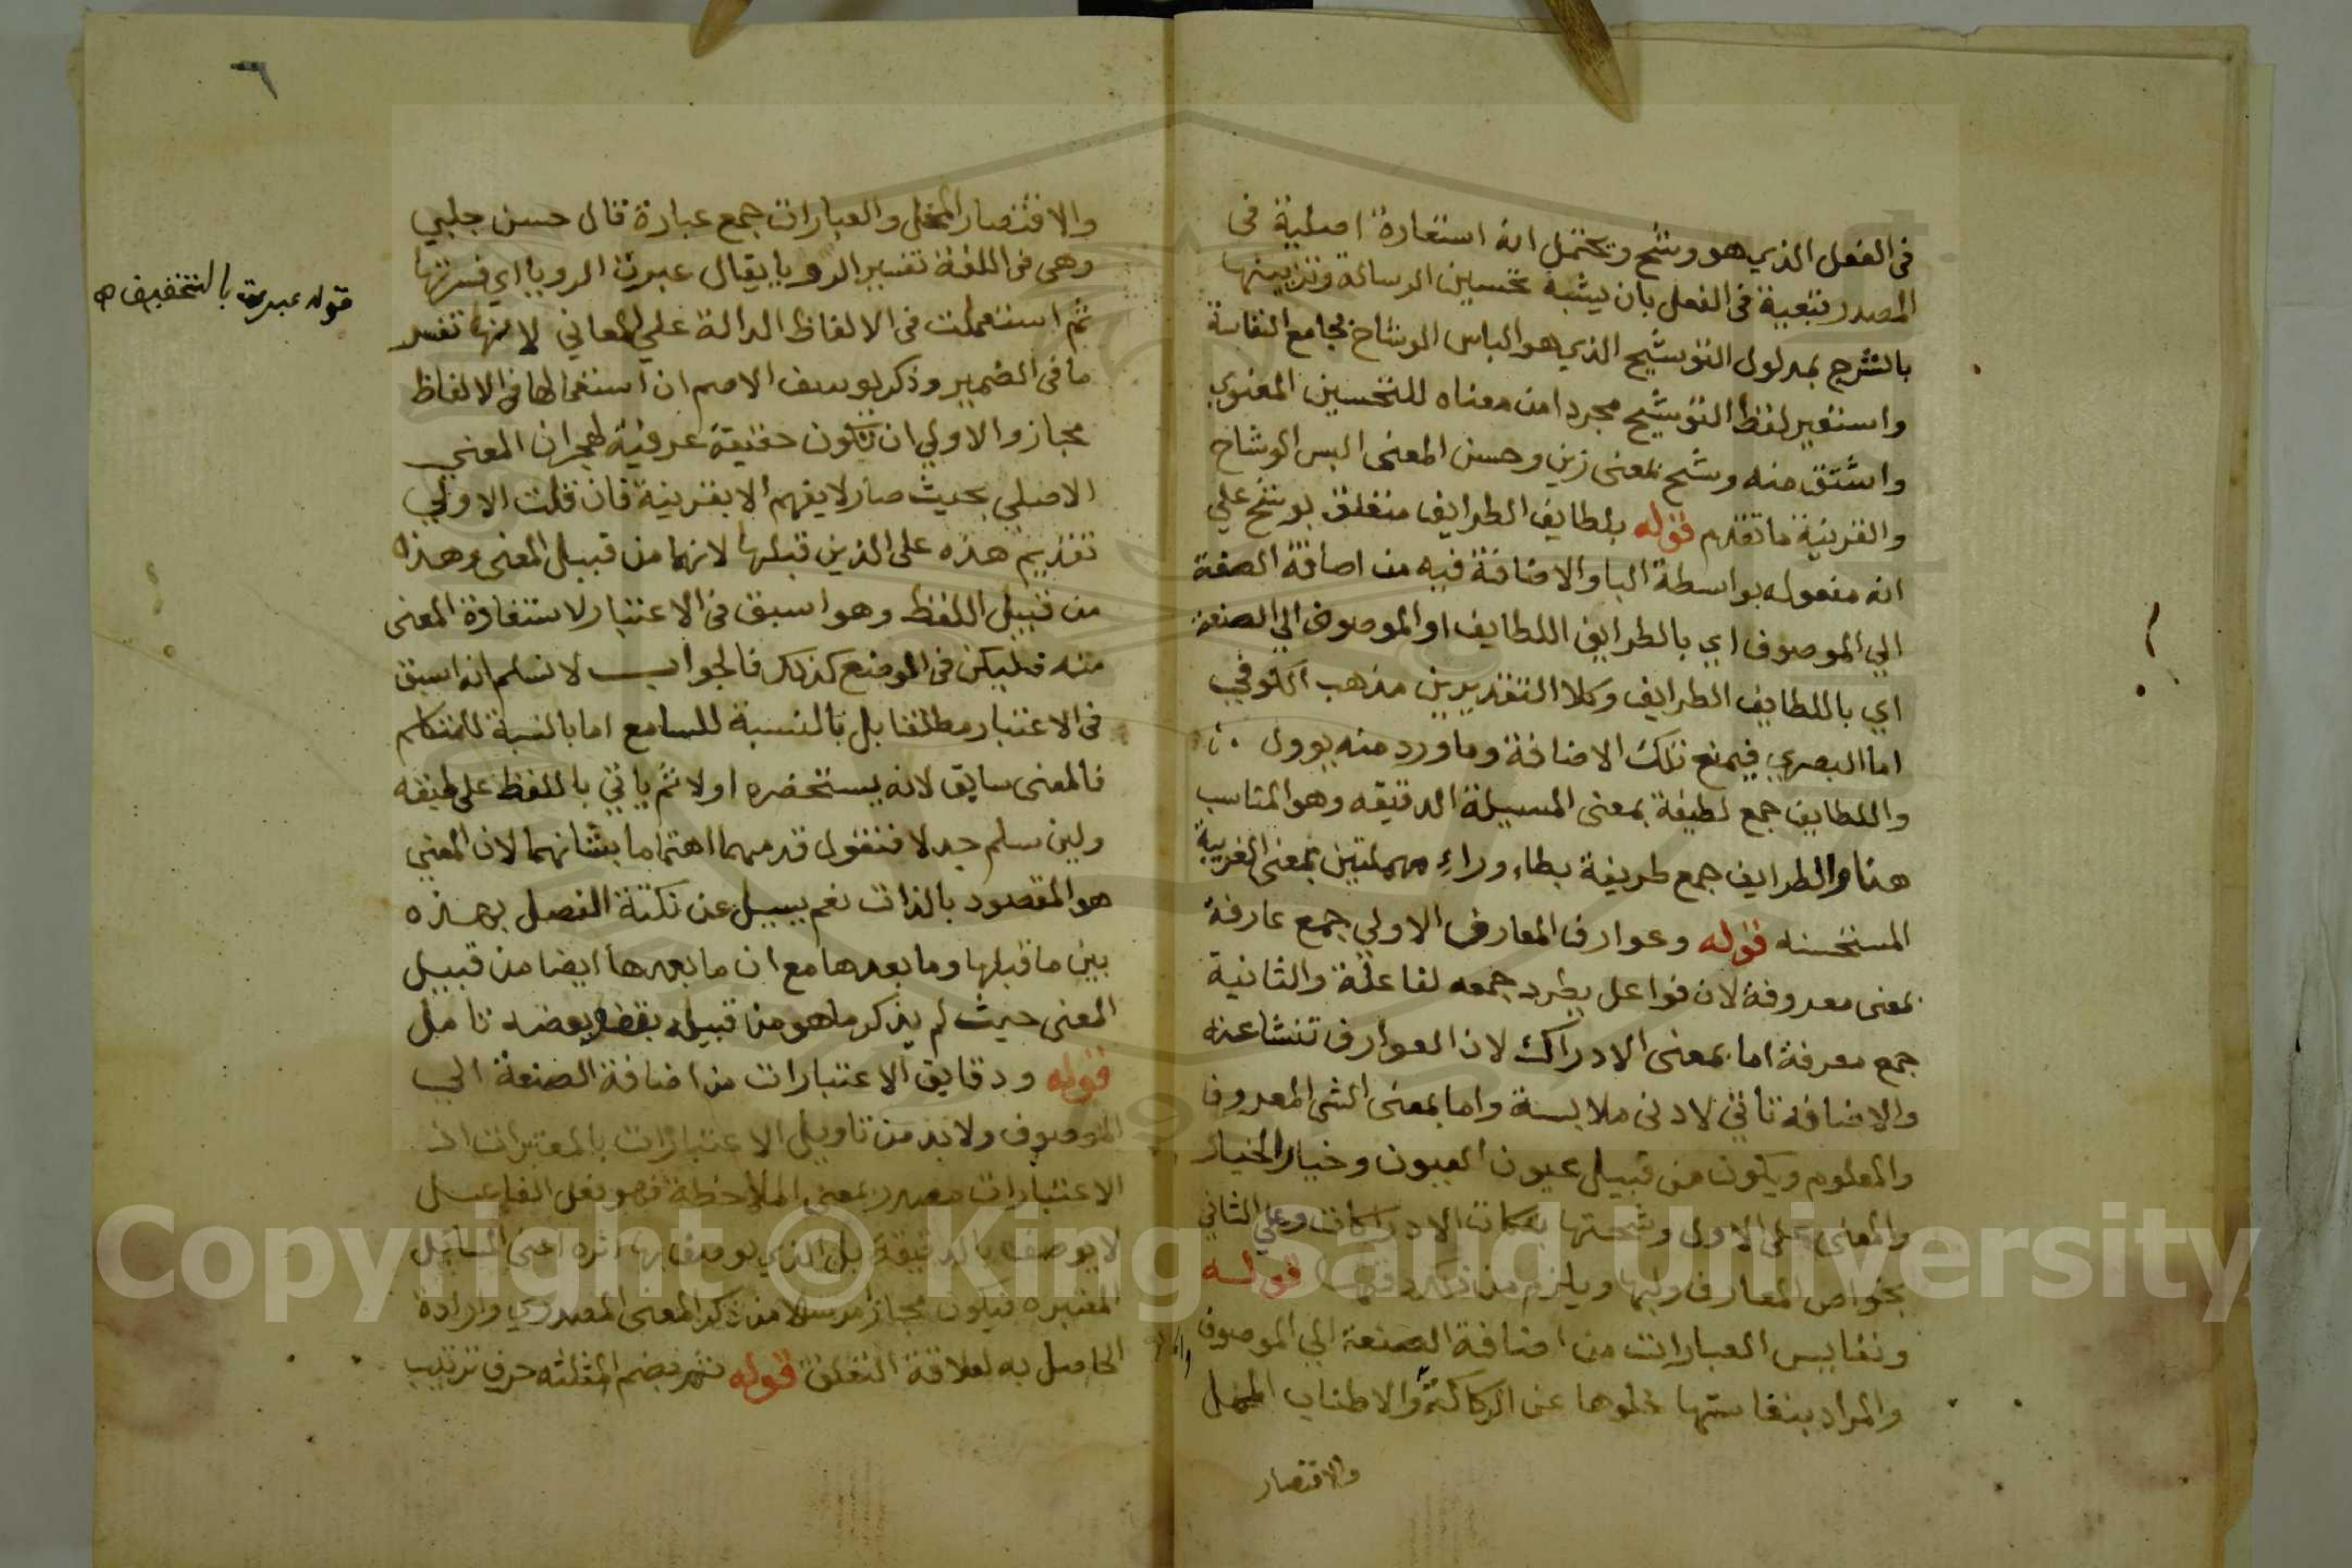 في الفعل الذي هو وشح ويحتمل انه استعارة اصلية في
المصدر تبعية في الفعل بان يشبه تحسين الرسالة وتزيينها
بالشرح بمدلول التوشيح الذي هو الباس الوشاح بجامع النفاسة
واستعير لفظ التوشيح مجردا من معناه للتحسين المعنوي
واشتق منه وشح بمعنى زين وحسن المعنى البس الوشاح
والقرينة ما تقدم قوله بلطايف الطرايف متعلق بوشح علي
انه مفعوله بواسطة البا والاضافة فيه من اضافة الصفة
الي الموصوف اي بالطرايف اللطايف او الموصوف الي الصفة
اي باللطايف الطرايف وكلا التقديرين مذهب الكوفي
اما البصري فيمنع تلك الاضافة وما ورد منه يوول
واللطايف جمع لطيفة بمعنى المسيلة الدقيقه وهو المناسب
هنا والطرايف جمع طريفة بطاء وراء مهملتين بمعنى الغريبة
المستحسنه قوله وعوارف المعارف الاولي جمع عارفة
بمعنى معروفة لان فواعل يطرد جمعه لفاعلة والثانية
جمع معرفة اما بمعنى الادراك لان العوارف تنشا عنه
والاضافة تاتي لادنى ملابسة واما بمعنى الشي المعروف
والمعلوم ويكون من قبيل عيون العيون وخيار الخيار
والمعنى على الاول وشحتها الادراكات وعلي الثاني
بخواص المعارف ويلزم من قوله
ونفايس العبارات من اضافة الصفة الي الموصوف
والمراد بنفاستها خلوها عن الركاكة والاطناب الممل
والاقتصار
٦
والاقتصار المخل والعبارات جمع عبارة قال حسن جلبي
وهي في اللغة تفسير الرويا يقال عبرت الرويا اي فسرتها
ثم استعملت في الالفاظ الدالة علي المعاني لانها تفسر
ما في الضمير وذكر يوسف الاصم ان استعمالها في الالفاظ
مجاز والاولي ان تكون حقيقة عرفية لهجران المعني
الاصلي بحيث صار لا يفهم الا بقرينة فان قلت الاولي
تقديم هذه على الذين قبلها لانهما من قبيل المعنى وهذه
من قبيل اللفظ وهو اسبق في الاعتبار لاستفادة المعنى
منه فليكن في الوضع كذلك فالجواب لا نسلم انه اسبق
في الاعتبار مطلقا بل بالنسبة للسامع اما بالنسبة للمتكلم
فالمعنى سابق لانه يستحضره اولا ثم ياتي باللفظ على طبقه
ولين سلم جدلا فنقول قدمهما اهتماما بشانهما لان المعني
هو المقصود بالذات نعم يسيل عن نكتة الفصل بهذه
بين ما قبلها وما بعدها مع ان ما بعدها ايضا من قبيل
المعنى حيث لم يذكر ما هو من قبيله بعضه تامل
قوله ودقايق الاعتبارات من اضافة الصفة الي
الموصوف ولا بد من تاويل الاعتبارات بالمعتبرات اذ
الاعتبارات مصدر بمعنى الملاحظة فهو فعل الفاعل
لا يوصف بالدقيقة بل الذي يوصف بها اثره اعني المسايل
المعتبرة فيكون مجازا مرسلا من ذكر المعنى المصدري وارادة
الحاصل به لعلاقة التعلق قوله ثم بضم المثلثه حرف ترتيب
قوله عبرت بالتخفيف
Copyright © King Saud University